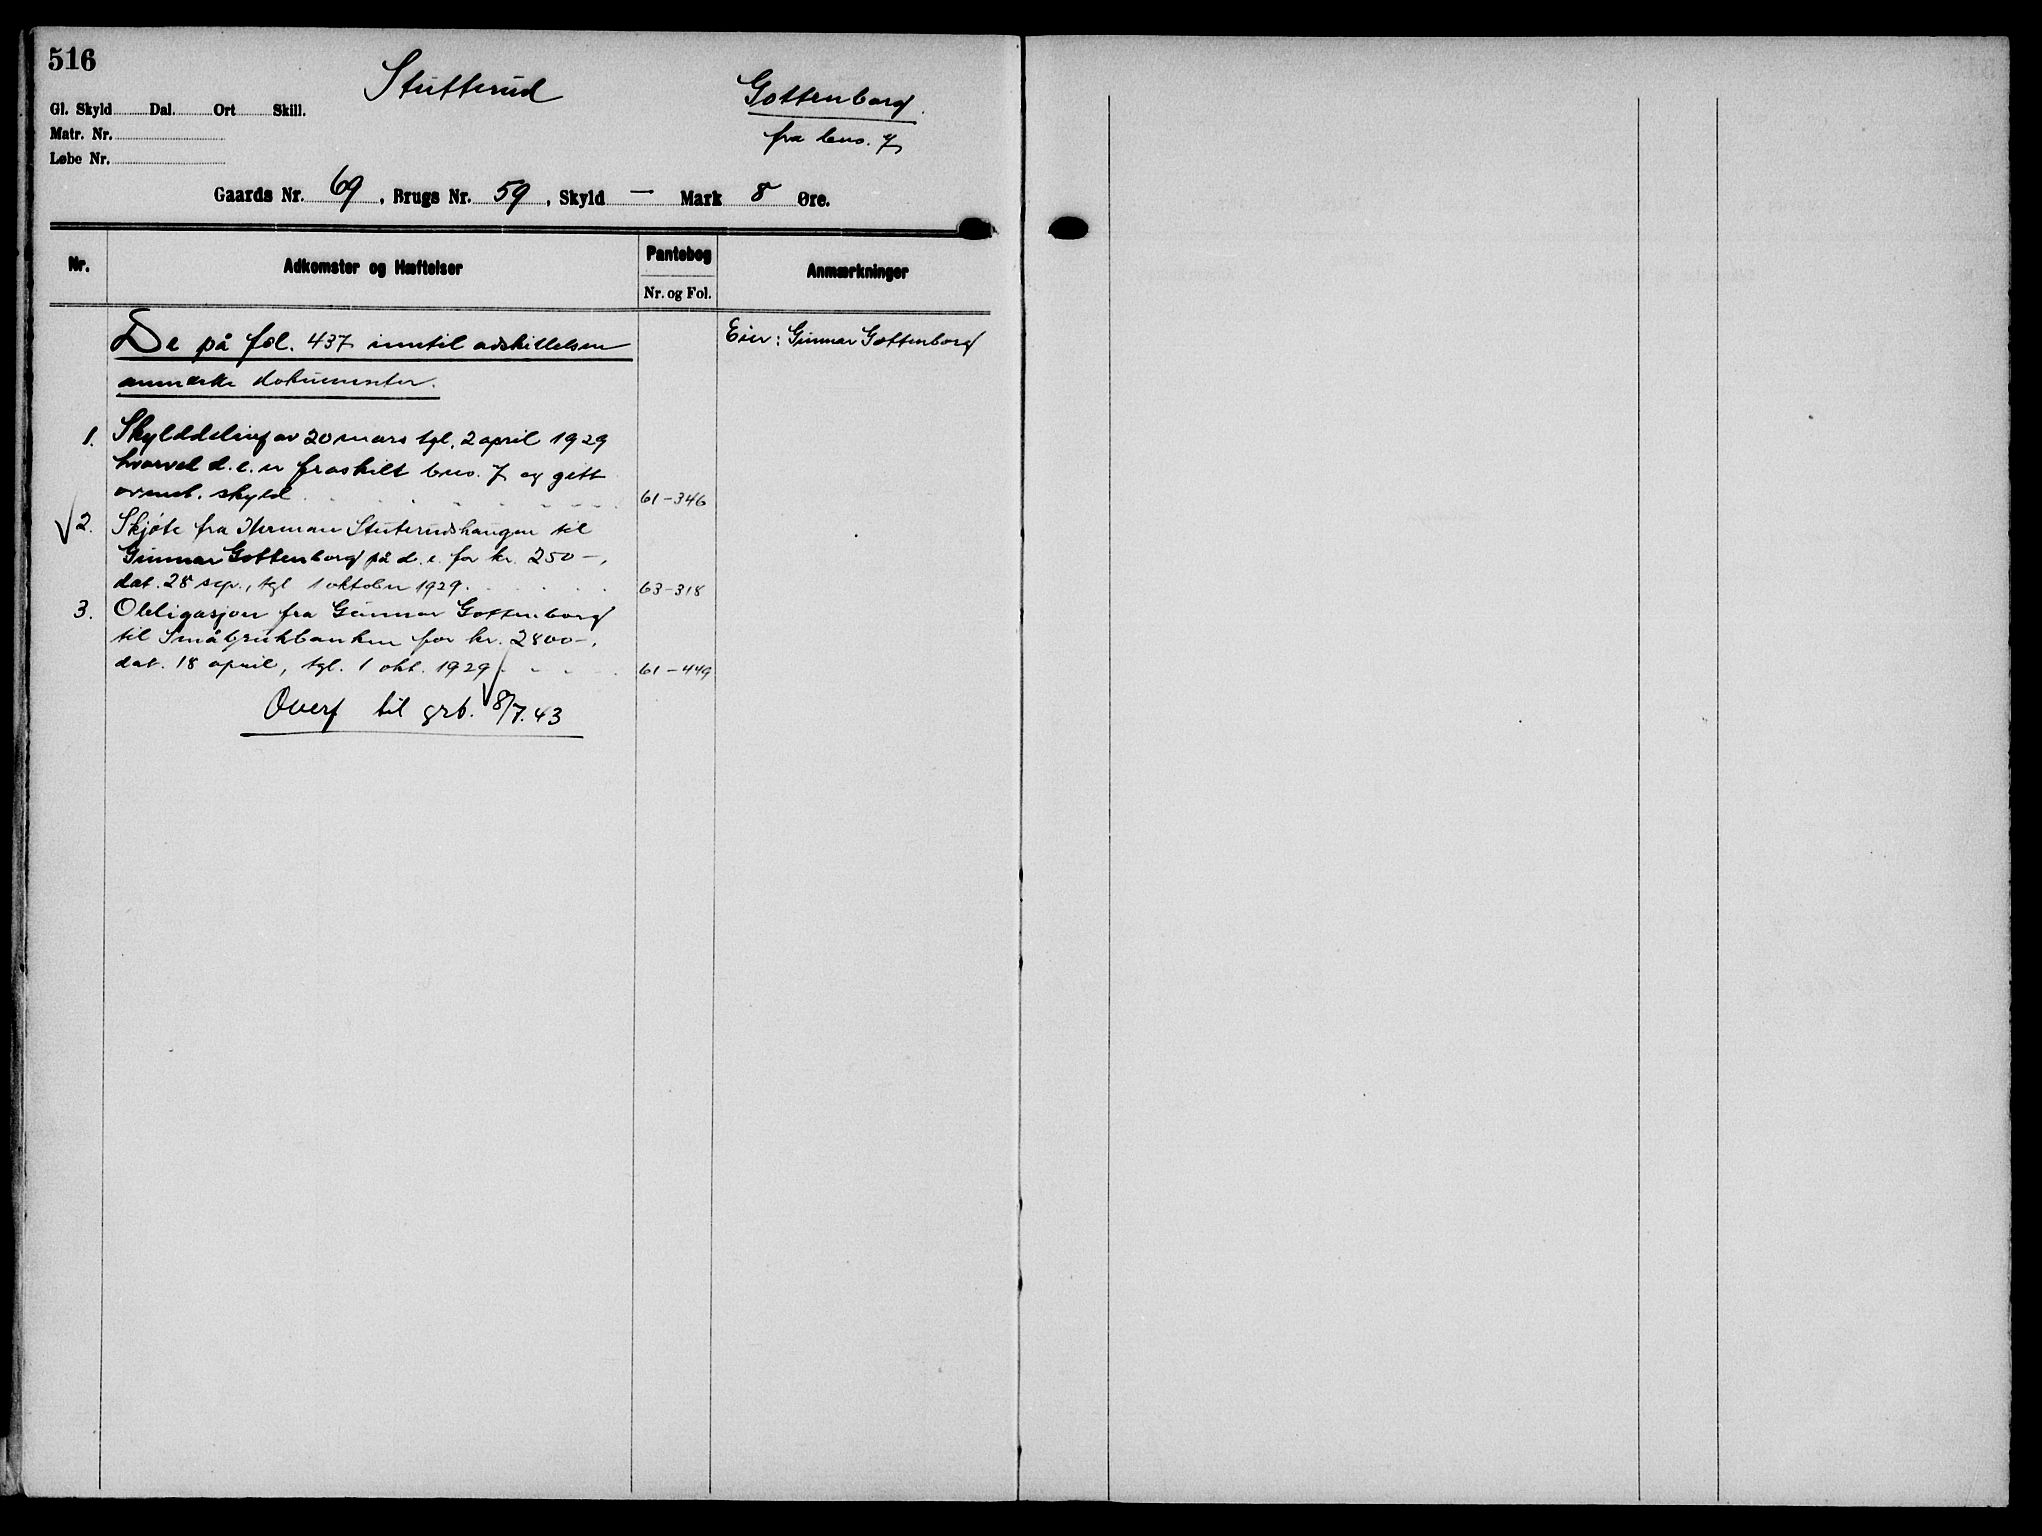 516
Stutterud
Gottenborg.
fra bno. 7
Gl. Skyld Dal. Ort Skill.
Matr. Nr.
Løbe Nr.
Gaards Nr. 69, Brugs Nr. 59, Skyld — Mark 8 Øre.
Nr. Adkomster og Hæftelser Pantebog Nr. og Fol. Anmærkninger
De på fol. 437 inntil adskillelsen
anmerkte dokumenter.
Eier: Gunnar Gottenborg
1. Skylddeling av 20 mars tgl. 2 april 1929
hvorved d. e. er fraskilt bno. 7 og gitt
ovennt. skyld 61-346
2. Skjøte fra Herman Stuterudshaugen til
Gunnar Gottenborg på d. e. for kr. 250-,
dat. 28 sep., tgl 1 oktober 1929. 63-318
3. Obligasjon fra Gunnar Gottenborg
til Småbrukbanken for kr. 2800-,
dat. 18 april, tgl. 1 okt. 1929 61-449
Overf til grb. 8/7.43